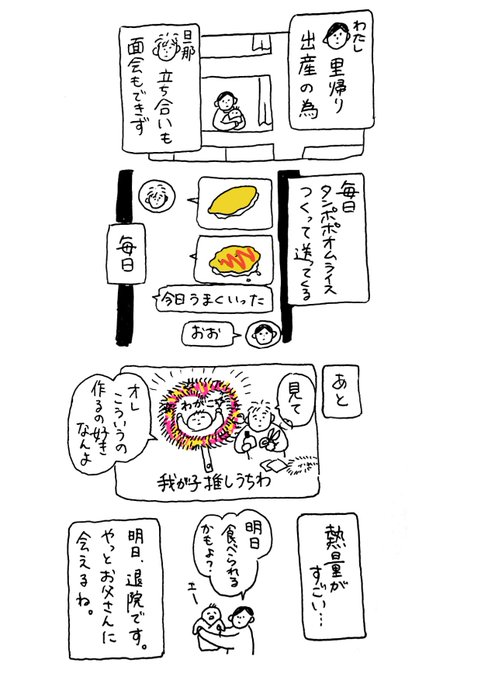 わたし
里帰り
出産の為
旦那
立ち合いも
面会もできず
毎日
タンポポオムライス
つくって送ってくる
毎日
今日うまくいった
おお
あと
見て
わがこ
オレ
こういうの
作るの好き
なんよ
我が子推しうちわ
熱量が
すごい…
明日
食べられる
かもよ?
エ
明日、退院です。
やっとお父さんに
会えるね。